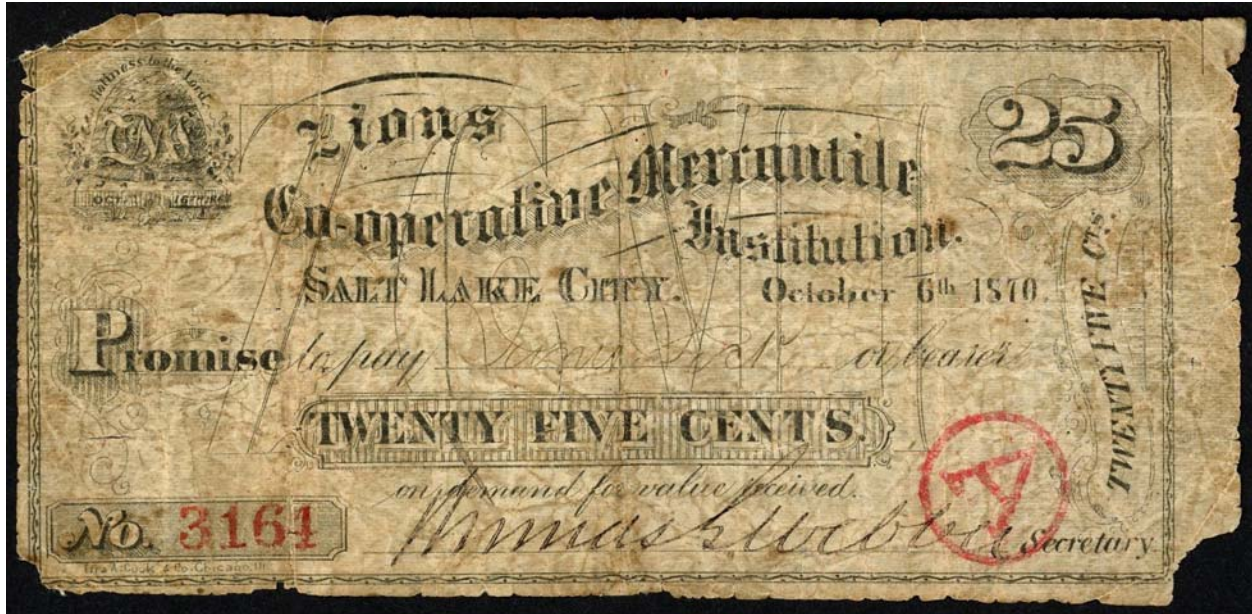 Holiness to the Lord.
ZCMI
25
Zions
Co-operative Mercantile
Institution.
SALT LAKE CITY. October 6th 1870.
Promise to pay or bearer
TWENTY FIVE CENTS.
on demand for value received.
No. 3164
Secretary
A
TWENTY FIVE CTS.